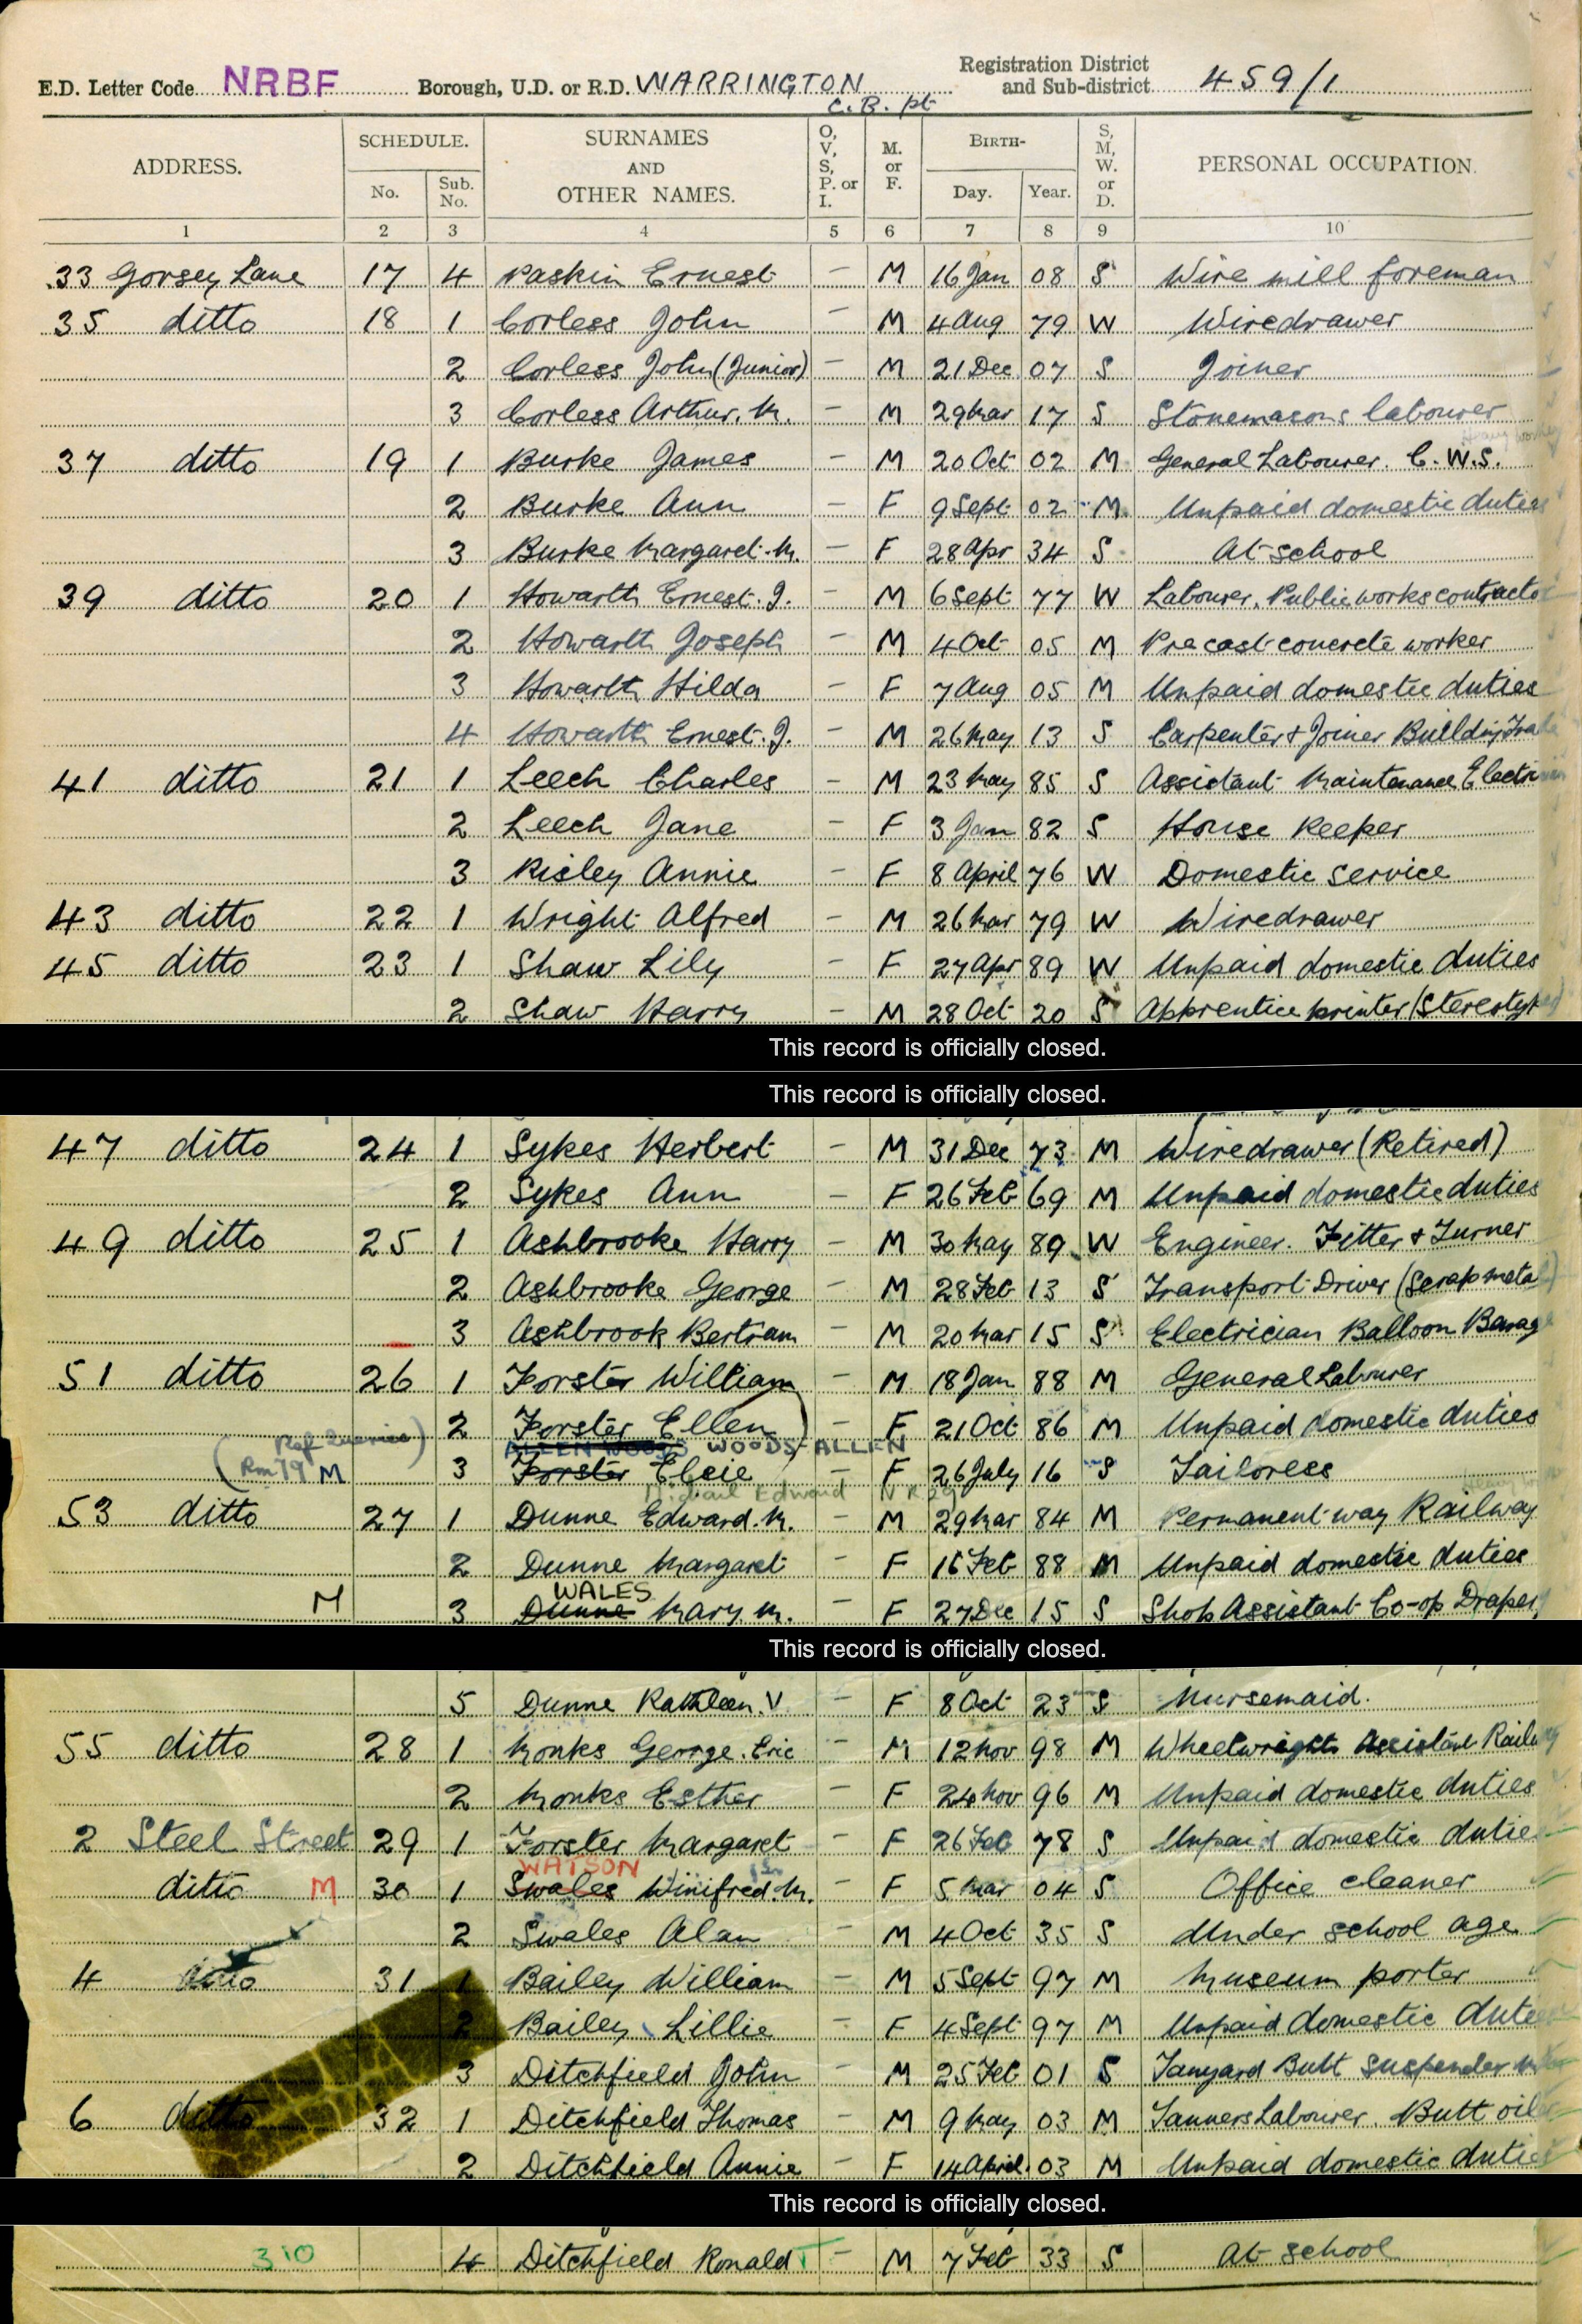 E.D. Letter Code NRBF Borough, U.D. or R.D. WARRINGTON C.B. pt Registration District and Sub-district 459/1
ADDRESS. SCHEDULE. No. Sub. No. SURNAMES AND OTHER NAMES. O, V, S, P. or I. M. or F. BIRTH- Day. Year. S, M, W. or D. PERSONAL OCCUPATION.
1 2 3 4 5 6 7 8 9 10
33 Gorsey Lane 17 4 Paskin Ernest – M 16 Jan 08 S Wire mill foreman
35 ditto 18 1 Corless John – M 4 Aug 79 W Wiredrawer
2 Corless John (Junior) – M 21 Dec 07 S Joiner
3 Corless Arthur. M. – M 29 Mar 17 S Stonemasons labourer
37 ditto 19 1 Burke James – M 20 Oct 02 M General Labourer. C.W.S.
2 Burke Ann – F 9 Sept 02 M Unpaid domestic duties
3 Burke Margaret. M. – F 28 Apr 34 S At school
39 ditto 20 1 Howarth Ernest. J. – M 6 Sept 77 W Labourer. Public works contractor
2 Howarth Joseph – M 4 Oct 05 M Precast concrete worker
3 Howarth Hilda – F 7 Aug 05 M Unpaid domestic duties
4 Howarth Ernest. J. – M 26 May 13 S Carpenter & Joiner Building Trade
41 ditto 21 1 Leech Charles – M 23 May 85 S Assistant Maintenance Electrician
2 Leech Jane – F 3 Jan 82 S House Keeper
3 Risley Annie – F 8 April 76 W Domestic service
43 ditto 22 1 Wright Alfred – M 26 Mar 79 W Wiredrawer
45 ditto 23 1 Shaw Lily – F 27 Apr 89 W Unpaid domestic duties
2 Shaw Harry – M 28 Oct 20 S Apprentice printer (Stereotyper)
This record is officially closed.
This record is officially closed.
47 ditto 24 1 Sykes Herbert – M 31 Dec 73 M Wiredrawer (Retired)
2 Sykes Ann – F 26 Feb 69 M Unpaid domestic duties
49 ditto 25 1 Ashbrooke Harry – M 30 May 89 W Engineer. Fitter & Turner
2 Ashbrooke George – M 28 Feb 13 S Transport Driver (Scrap metal)
3 Ashbrook Bertram – M 20 Mar 15 S Electrician Balloon Barage
51 ditto 26 1 Forster William – M 18 Jan 88 M General Labourer
2 Forster Ellen – F 21 Oct 86 M Unpaid domestic duties
ALLEN WOODS WOODS-ALLEN
(Rm 79 M 3 Forster Elsie – F 26 July 16 S Tailoress
Edward
53 ditto 27 1 Dunne Edward. M. – M 29 Mar 84 M Permanent way Railway
2 Dunne Margaret – F 16 Feb 88 M Unpaid domestic duties
WALES
M 3 Dunne Mary M. – F 27 Dec 15 S Shop Assistant Co-op Drapery
This record is officially closed.
5 Dunne Kathleen. V – F 8 Oct 23 S Nursemaid.
55 ditto 28 1 Monks George. Eric – M 12 Nov 98 M Wheelwrights Assistant Railway
2 Monks Esther – F 24 Nov 96 M Unpaid domestic duties
2 Steel Street 29 1 Forster Margaret – F 26 Feb 78 S Unpaid domestic duties
WATSON
ditto M 30 1 Swales Winifred. M. – F 5 Mar 04 S Office cleaner
2 Swales Alan – M 4 Oct 35 S Under school age
4 ditto 31 1 Bailey William – M 5 Sept 97 M Museum porter
2 Bailey Lillie – F 4 Sept 97 M Unpaid domestic duties
3 Ditchfield John – M 25 Feb 01 S Tanyard Butt suspender
6 ditto 32 1 Ditchfield Thomas – M 9 May 03 M Tanners Labourer. Butt oiler
2 Ditchfield Annie – F 14 April 03 M Unpaid domestic duties
This record is officially closed.
310 4 Ditchfield Ronald – M 7 Feb 33 S At school